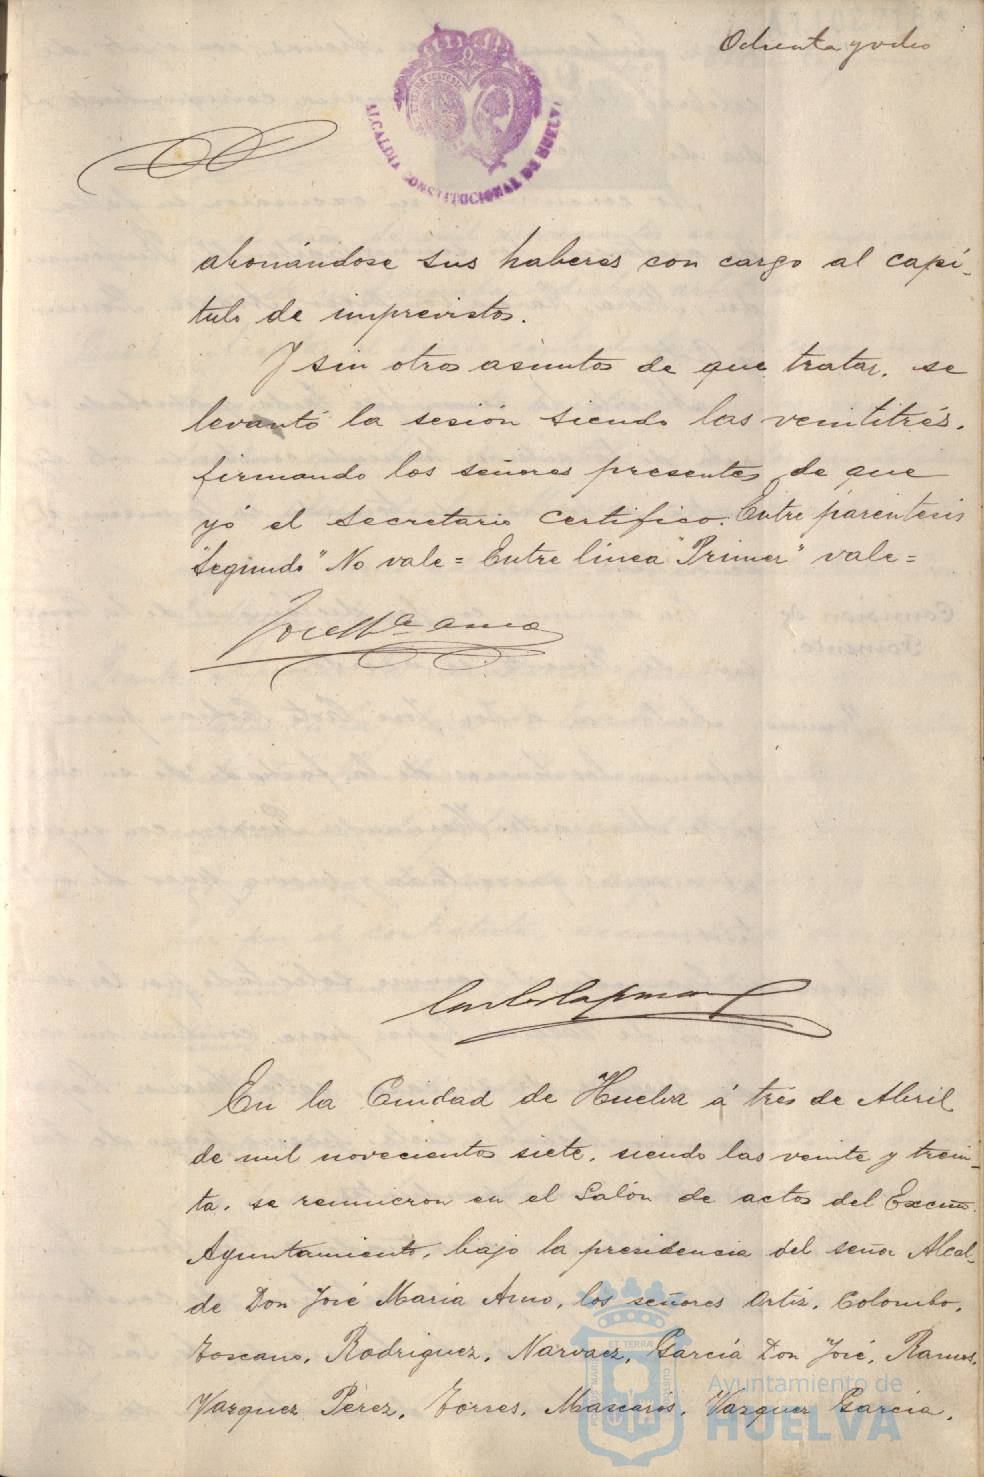 Ochenta y ocho
ALCALDIA CONSTITUCIONAL DE HUELVA
abonándose sus haberes con cargo al capí-
tulo de imprevistos.
Y sin otros asuntos de que tratar, se
levantó la sesión siendo las veintitrés,
firmando los señores presentes, de que
yó el secretario certifico. Entre paréntesis
"segundo" No vale = Entre línea "Primer" vale =
José Mª Amo
En la Ciudad de Huelva á tres de Abril
de mil novecientos siete, siendo las veinte y trein-
ta, se reunieron en el Salón de actos del Excmo.
Ayuntamiento, bajo la presidencia del señor Alcal-
de Don José María Amo, los señores Ortiz, Colombo,
Toscano, Rodriguez, Narvaez, García Don José, Ramos,
Vazquez Pérez, Torres, Mascarós, Vázquez García,
Ayuntamiento de
HUELVA